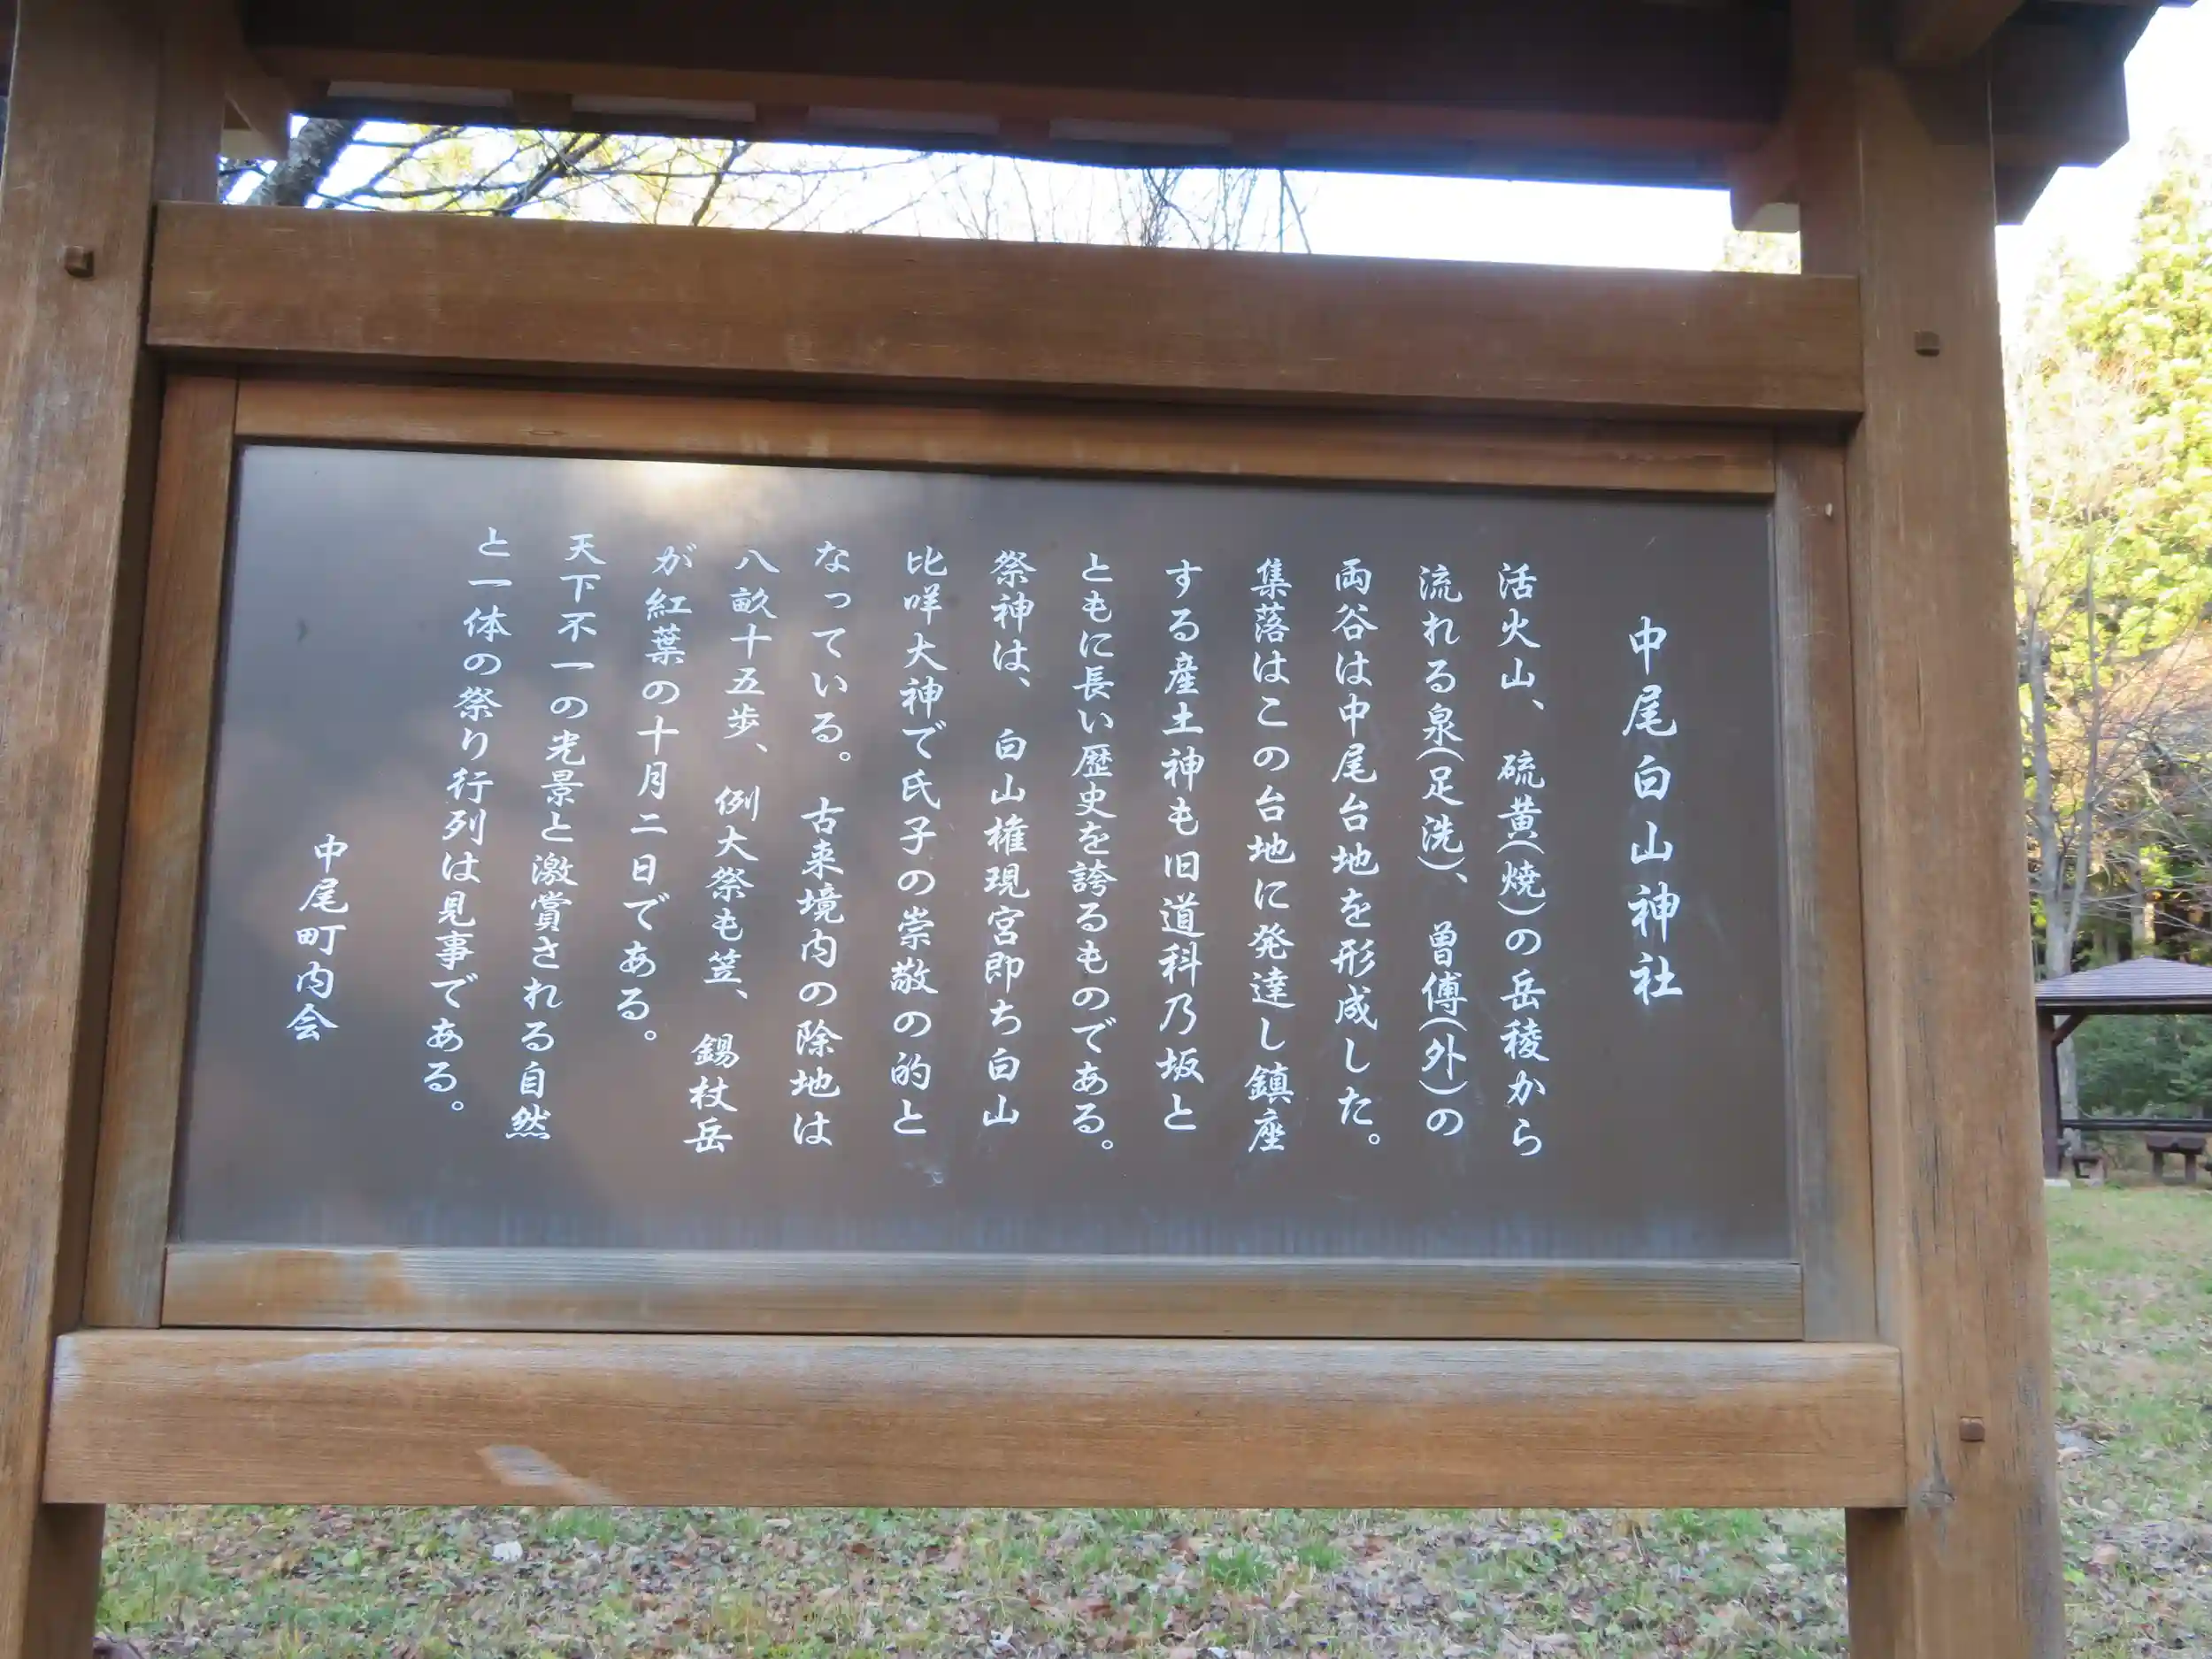 中尾白山神社
活火山、硫黄(焼)の岳稜から
流れる泉(足洗)、曽傅(外)の
両谷は中尾台地を形成した。
集落はこの台地に発達し鎮座
する産土神も旧道科乃坂と
ともに長い歴史を誇るものである。
祭神は、白山権現宮即ち白山
比咩大神で氏子の崇敬の的と
なっている。古来境内の除地は
八畝十五歩、例大祭も笠、錫杖岳
が紅葉の十月二日である。
天下不一の光景と激賞される自然
と一体の祭り行列は見事である。
中尾町内会